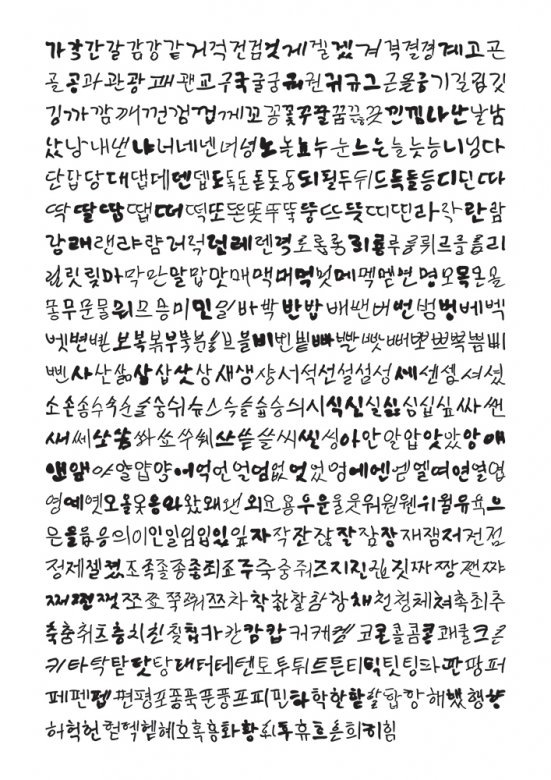 가각간갈감강같거걱건검것게겔겠겨격결경계고곤
골공과관광괘괜교구국굴궁궈권귀규그근을긍기길김깃
깅까깜깨껀껌껍께꼬꽁꽃꾸꿀꿈끓끗낀낌나난날남
났낭내낸냐너네넨녀녕노녹뇨누눈느는늘늦능니닝다
단답당대댑데덴뎁도독돈돋돗동되될두뒤드득들등디딘따
딱딸땀땝떠떡또똔똣뚜뚝뚱뜨뜻띠띤라락란람
랑래랜랴럄러럭런레렌력로록롬롱뢰룡루룽뤼르를름리
릴릿링마막만말맙맛매맥머먹멋메멕멘면명모목몬몰
몽무문물뮈므승미민밀바박반밥배밴버번범벙베벡
벳변볕보복본부북분불브블비빈빝빠빨빳뻐뽀쁘쁙쁨삐
삔사산삶살삽삿상새생샹서석선섣설섬성세센셉셔셨
소손솜송수숙순술숨숭쉬슈스슥슬습승의시식신실싫심십싶싸쌘
쌔쎄쏘쏨쏴쇼쑤쒜쓰쓷쓸씨씬씽아안알압앗았앙애
앤앞야얄얍양어억언얼엄없엇었었엉에엔엠엘여연열엽
영예옛오올옷옹와왔왜왠외요용우운울웃워원웬위월유육으
은을읍응의이인일임입있잎자작잔잖잘잠장재잼저전점
정제젤졌조족졸종좋죄죠주죽중줘즈지진짊짓짜짱짼쨔
째쩐쩟쪼쭈쭉쭤쯔차착찬찰참창채천청체쳐촉최추
축춤취츠층치친칠칩카칸캄캅커케켑코콘콜콤콩쾌쿨크큰
키타탁탙탓탕태터테텐토투튀트튼티틱팃팅파판팡퍼
페펜펩편평포퐁푹푼풍프피핀하학한핟할합항해했행향
허헉헌헐헥헬혜호혹홍화황회두휴흐흔희히힘